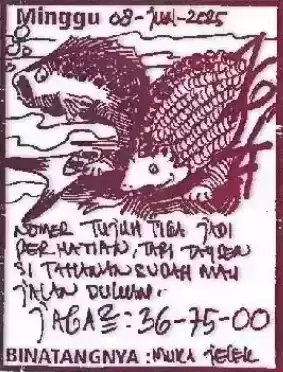 Minggu 08-Jun-2025
NOMER TUJUH TIGA JADI
PERHATIAN, TAPI TAYSEN
SI TAHANAN SUDAH MAU
JALAN DULUAN.
JAGA2: 36-75-00
BINATANGNYA : MUKA JELEK